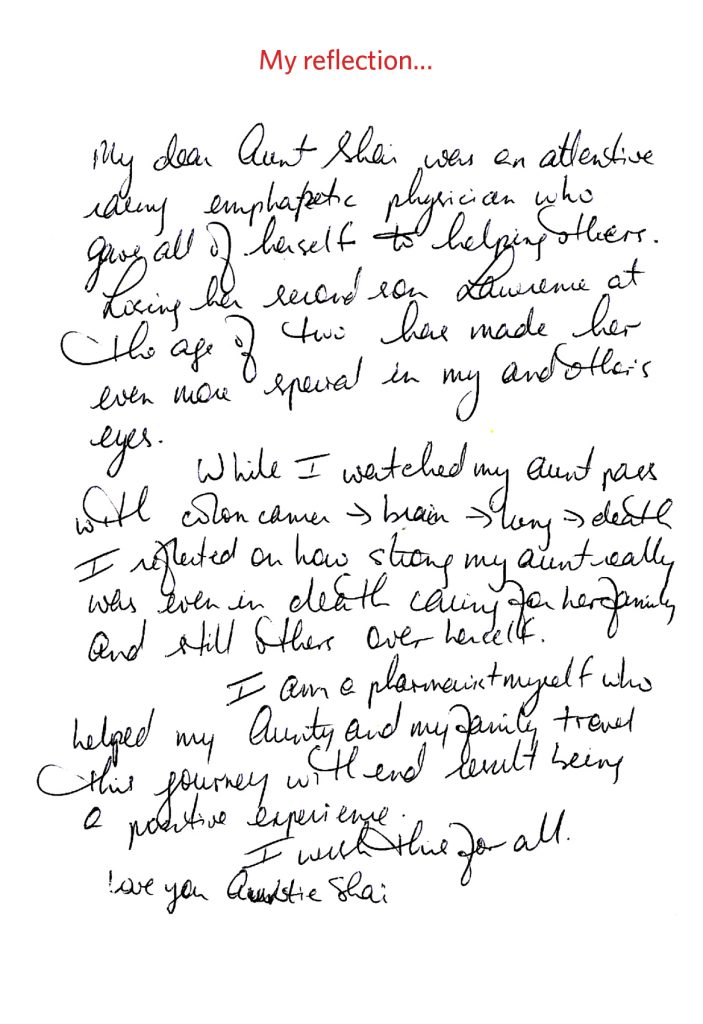 My reflection...
My dear Aunt Shai was an attentive
caring emphapetic physician who
gave all of herself to helping others.
Losing her second son Lawrence at
the age of two have made her
even more special in my and other's
eyes.
While I watched my aunt pass
with colon cancer → brain → lung → death
I reflected on how strong my aunt really
was even in death caring for her family
and still others over herself.
I am a pharmacist myself who
helped my Aunty and my family travel
this journey with end result being
a positive experience.
I wish this for all.
Love you Auntie Shai